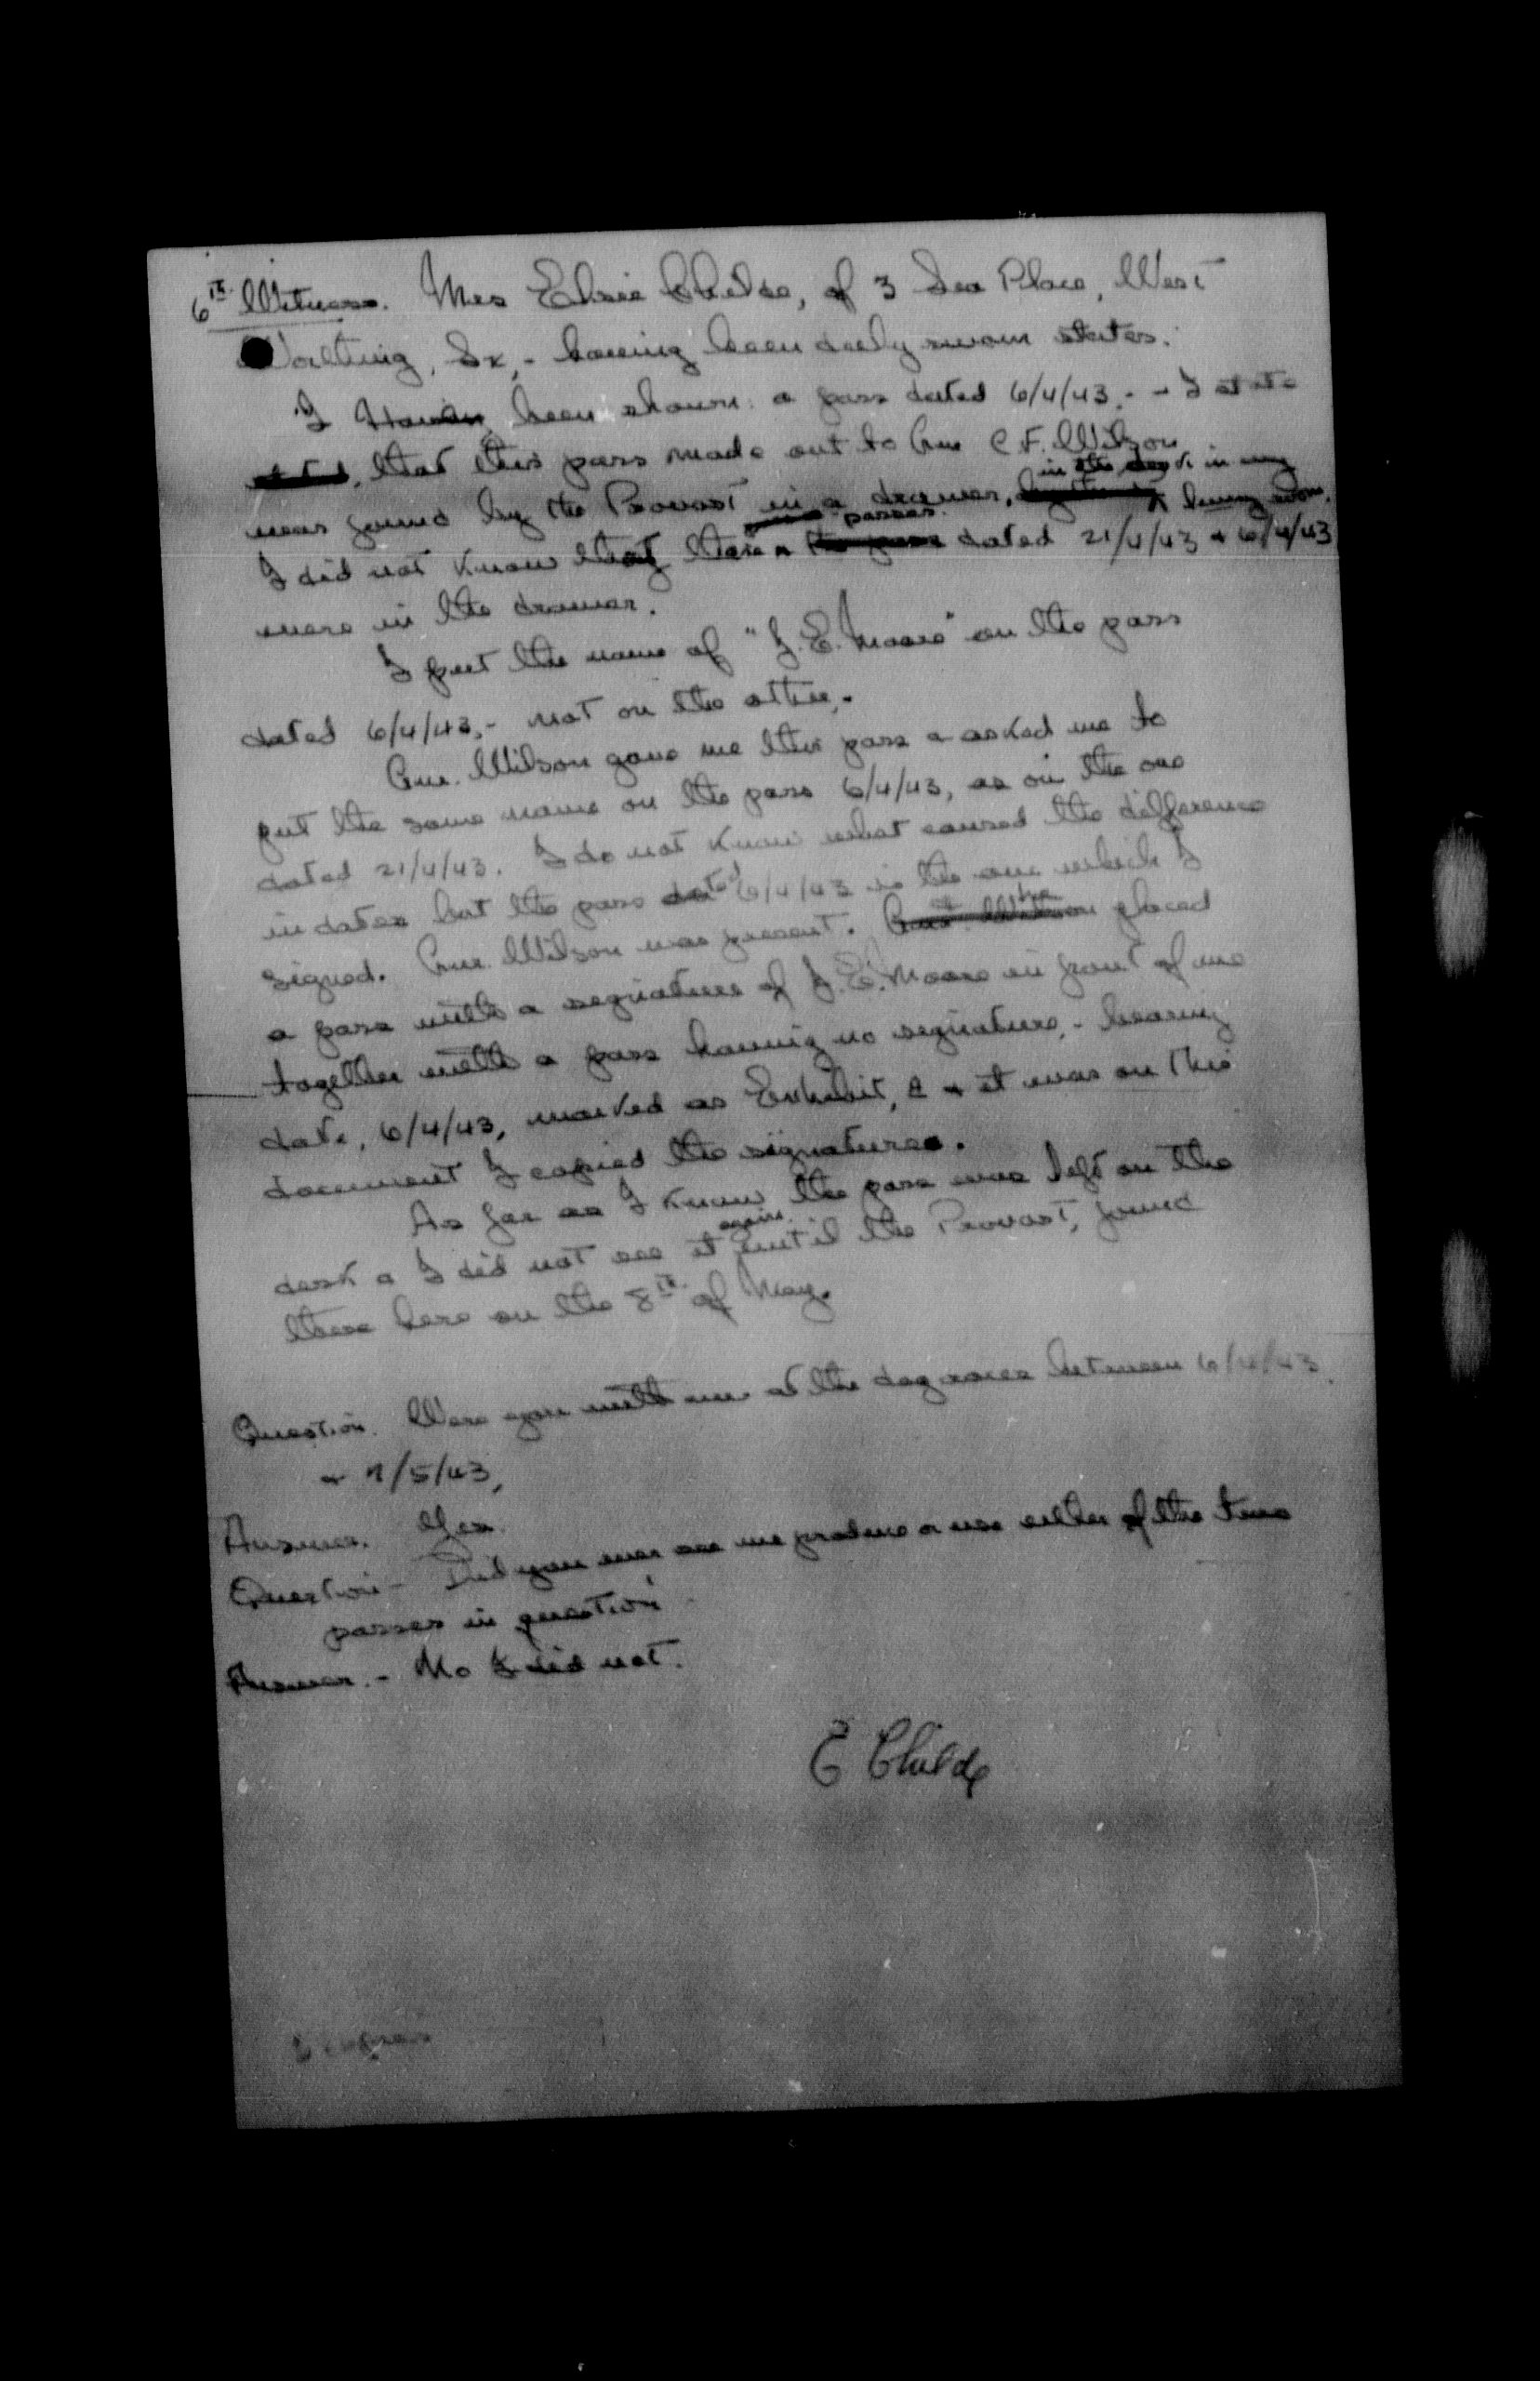 6th Witness. Mrs Elsie Childs, of 3 Sea Place, West
Worthing, Sx, - having been duly sworn states:
I Have been shown a pass dated 6/4/43. - I state
that this pass made out to Gnr C.F. Wilson
in the desk in my
was found by the Provost in a drawer, living room.
passes
I did not know that these dated 21/4/43 & 6/4/43
were in the drawer.
I put the name of "J.E. Moore" on the pass
dated 6/4/43,- not on the other.
Gnr. Wilson gave me this pass & asked me to
put the same name on the pass 6/4/43, as on the one
dated 21/4/43. I do not know what caused the difference
in dates but the pass dated 6/4/43 is the one which I
signed. Gnr. Wilson was present. he placed
a pass with a signature of J.E. Moore in front of me
together with a pass having no signature, - bearing
date, 6/4/43, marked as Exhibit, & it was on this
document I copied the signature.
As far as I know the pass was left on the
again
desk & I did not see it until the Provost, found
these here on the 8th of May.
Question. Were you with me at the dog races between 6/4/43
& 7/5/43,
Answer. Yes.
Question - Did you ever see me produce or use either of the two
passes in question
Answer. - No I did not.
E Childs